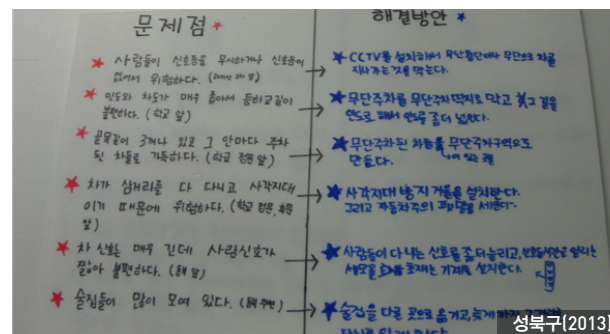 문제점
사람들이 신호등을 무시하거나 신호등이
없어서 위험하다.
인도와 차도가 매우 좁아서 등하교길이
불편하다. (학교 앞)
골목길이 3개나 있고 그 안마다 주차
된 차들로 가득하다. (학교 정문 앞)
차가 삼거리를 다 다니고 사각지대
이기 때문에 위험하다. (학교 정문, 후문
앞)
차 신호는 매우 긴데 사람신호가
짧아 불편하다.
술집들이 많이 모여 있다.
해결방안
CCTV를 설치해서 무단횡단이나 무단으로 차를
지나가는 것을 막는다.
무단주차를 무단주차 딱지로 막고 길을
인도로 해서 인도를 좀 더 넓힌다.
무단주차된 차들을 무단주차구역으로
만든다.
사각지대 방지 거울을 설치한다.
그리고 자동차주의 팻말을 세운다.
사람들이 다니는 신호를 좀 더 늘리고, 신호등시간을 알리는
세모를 기계를 설치한다.
술집을 다른 곳으로 옮기고, 늦게
성북구(2013)